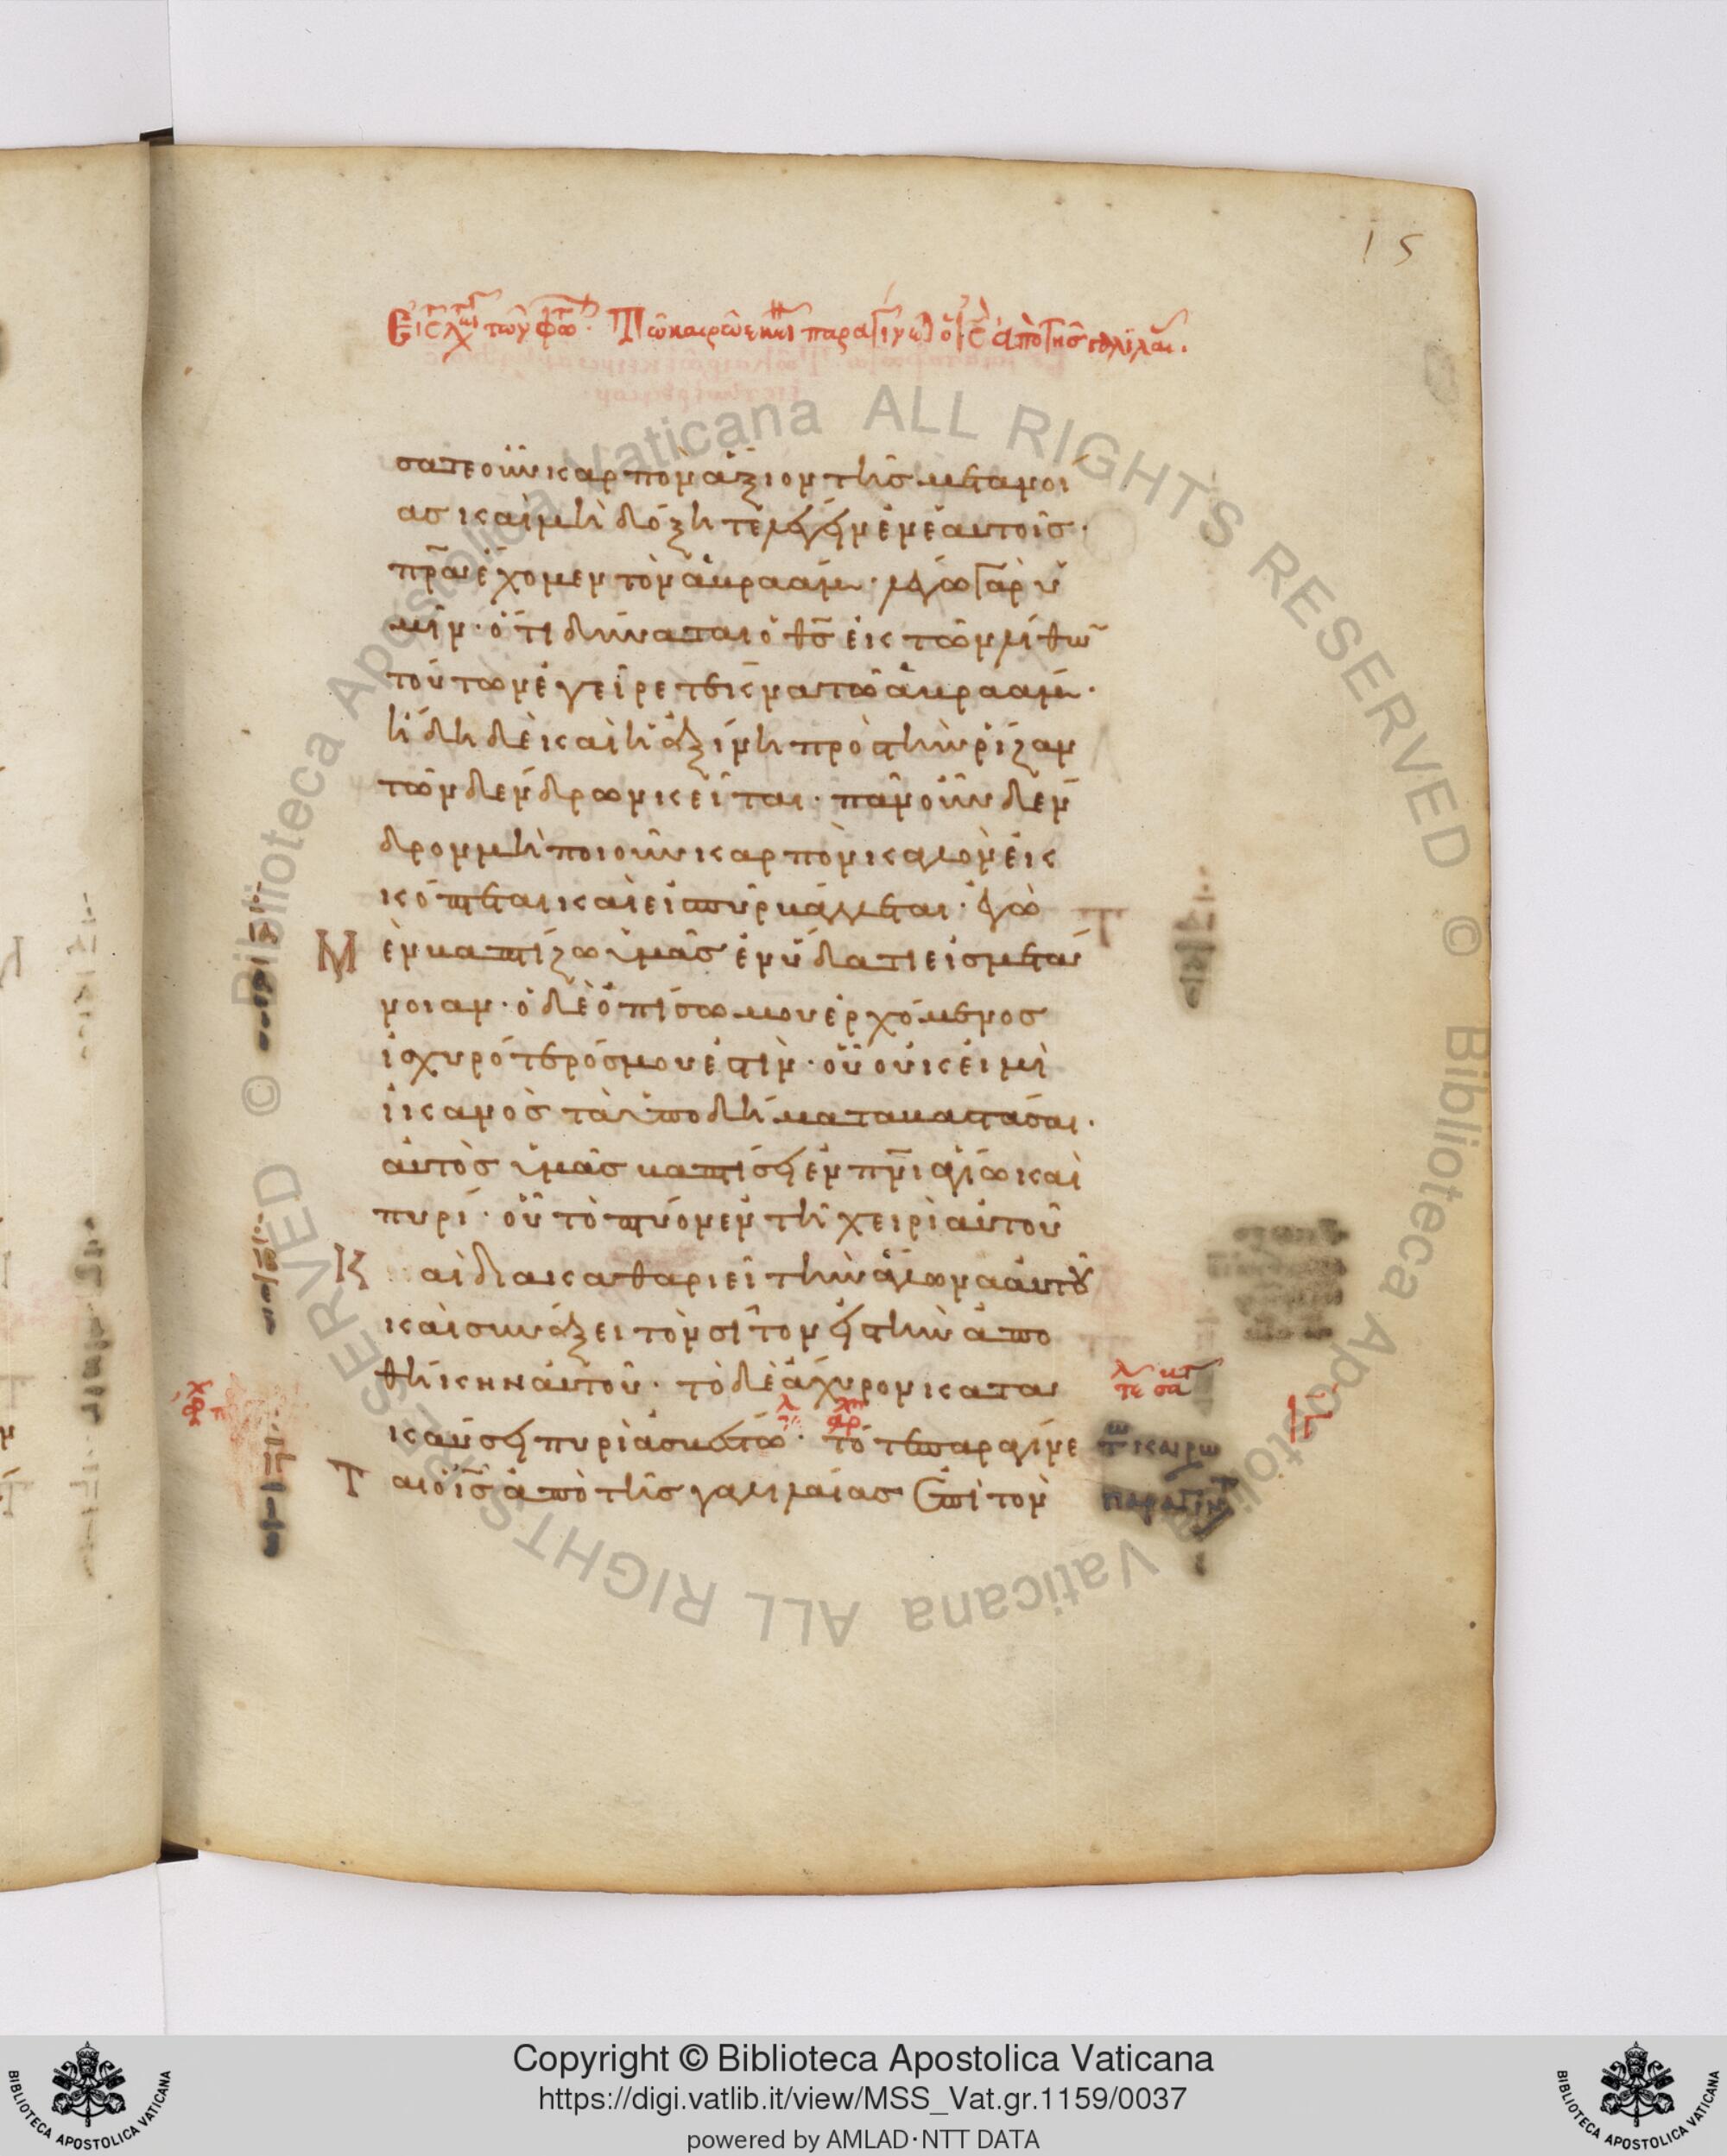 15
Εἰς τὴν τῶν φώτων. Τῶ καιρῶ ἐκεί παραγίνεται ὁ ἰς ἀπὸ τῆς γαλιλαί.
σατε οὖν καρπὸν ἄξιον τῆς μετανοί
ας καὶ μὴ δόξητε λέγειν ἐν ἑαυτοῖς·
πρα ἔχομεν τὸν ἀβραάμ· λέγω γὰρ ὑ
μῖν· ὅτι δύναται ὁ θς ἐκ τῶν λίθω
τούτων ἐγεῖραι τέκνα τῶ ἀβραάμ·
ἤδη δὲ καὶ ἡ ἀξίνη πρὸς τὴν ῥίζαν
τῶν δένδρων κεῖται· πᾶν οὖν δέν
δρον μὴ ποιοῦν καρπὸν καλὸν ἐκ
κόπτεται καὶ εἰς πῦρ βάλλεται· ἐγὼ
Μ ἐν βαπτίζω ὑμᾶς ἐν ὕδατι εἰς μετά
νοιαν· ὁ δὲ ὀπίσω μου ἐρχόμενος
ἰσχυρότερός μου ἐστὶν· οὗ οὐκ εἰμὶ
ἱκανὸς τὰ ὑποδήματα βαστάσαι·
αὐτὸς ὑμᾶς βαπτίσει ἐν πνι ἁγίω καὶ
πυρί· οὗ τὸ πτύον ἐν τῆ χειρὶ αὐτοῦ
Κ αὶ διακαθαριεῖ τὴν ἅλωνα αὐτοῦ
καὶ συνάξει τὸν σῖτον εἰς τὴν ἀπο
θήκην αὐτοῦ· τὸ δὲ ἄχυρον κατα
καύσει πυρὶ ἀσβέστω· τότε παραγίνε
Τ αι ὁ ἰς ἀπὸ τῆς γαλιλαίας ἐπὶ τὸν
τῶ καιρῶ
παραγίνε
ιγ
Copyright © Biblioteca Apostolica Vaticana
https://digi.vatlib.it/view/MSS_Vat.gr.1159/0037
powered by AMLAD·NTT DATA
BIBLIOTECA APOSTOLICA VATICANA
BIBLIOTECA APOSTOLICA VATICANA
© Biblioteca Apostolica Vaticana ALL RIGHTS RESERVED © Biblioteca Apostolica Vaticana ALL RIGHTS RESERVED